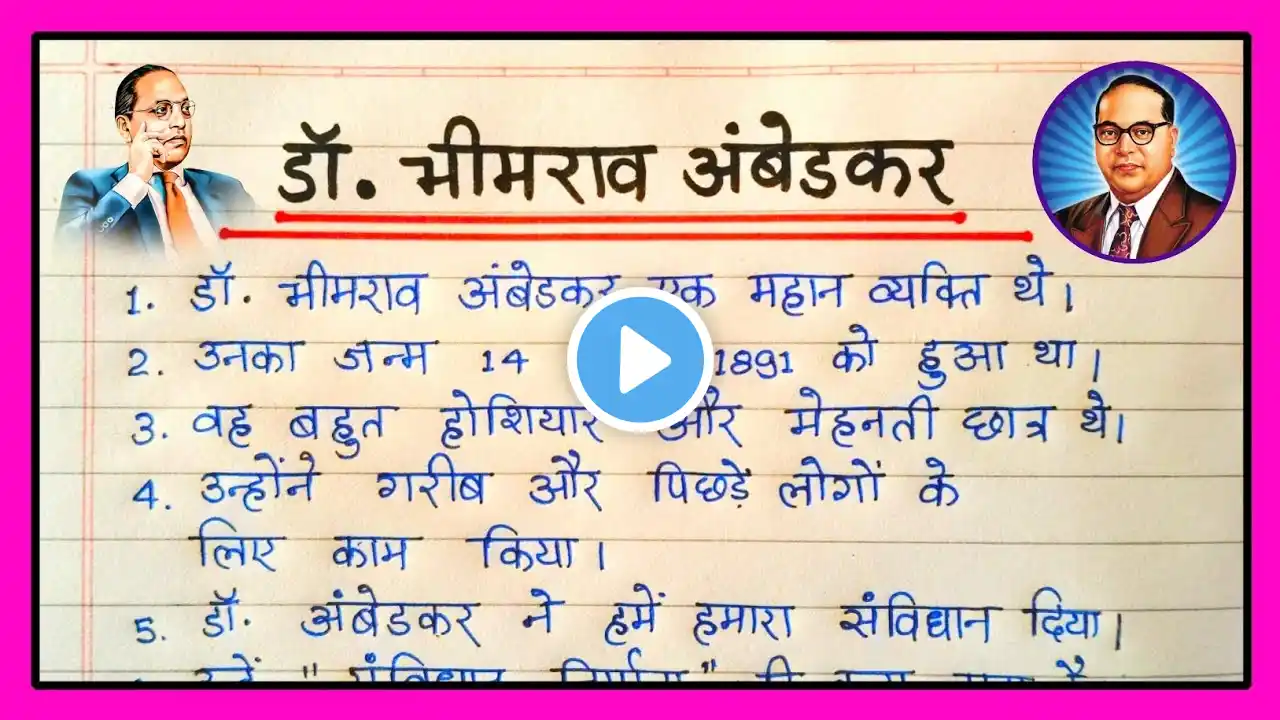 डॉ. भीमराव अंबेडकर
1. डॉ. भीमराव अंबेडकर एक महान व्यक्ति थे।
2. उनका जन्म 14 1891 को हुआ था।
3. वह बहुत होशियार और मेहनती छात्र थे।
4. उन्होंने गरीब और पिछड़ें लोगों के
लिए काम किया।
5. डॉ. अंबेडकर ने हमें हमारा संविधान दिया।